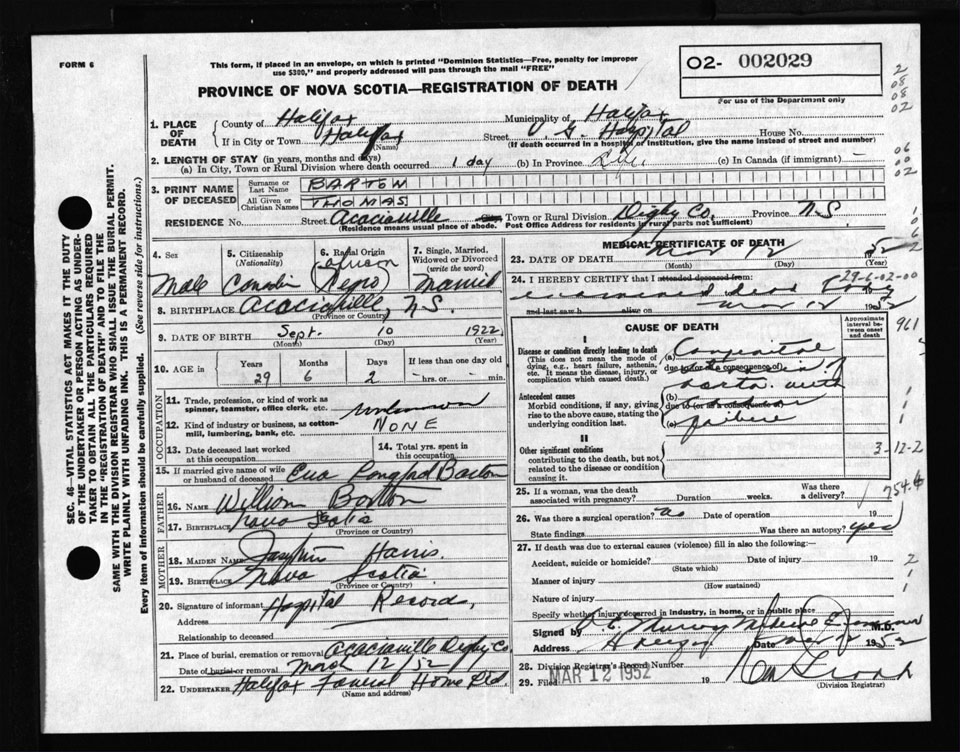 FORM 6
This form, if placed in an envelope, on which is printed "Dominion Statistics—Free, penalty for improper
use $300," and properly addressed will pass through the mail "FREE"
PROVINCE OF NOVA SCOTIA—REGISTRATION OF DEATH
O2- 002029
For use of the Department only
2
08
08
02
1. PLACE OF DEATH
County of Halifax Municipality of Halifax
If in City or Town Halifax (Name) Street V. G. Hospital House No.
(If death occurred in a hospital or institution, give the name instead of street and number)
2. LENGTH OF STAY (in years, months and days)
(a) In City, Town or Rural Division where death occurred 1 day (b) In Province Life (c) In Canada (if immigrant) -
06
00
02
3. PRINT NAME OF DECEASED
Surname or Last Name BARTON
All Given or Christian Names THOMAS
RESIDENCE No. Street Acaciaville Town or Rural Division Digby Co. Province N.S
(Residence means usual place of abode. Post Office Address for residents in rural parts not sufficient)
1
0
6
2
4. Sex
Male
5. Citizenship (Nationality)
Canadian
6. Racial Origin
African
(Negro)
7. Single, Married, Widowed or Divorced (write the word)
Married
8. BIRTHPLACE Acaciaville N.S.
(Province or Country)
9. DATE OF BIRTH Sept. 10 1922
(Month) (Day) (Year)
10. AGE in Years Months Days If less than one day old
29 6 2 - hrs. or - min.
OCCUPATION
11. Trade, profession, or kind of work as spinner, teamster, office clerk, etc. unknown
12. Kind of industry or business, as cotton-mill, lumbering, bank, etc. NONE
13. Date deceased last worked at this occupation
14. Total yrs. spent in this occupation
15. If married give name of wife or husband of deceased Barton
FATHER
16. NAME William Barton
17. BIRTHPLACE Nova Scotia
(Province or Country)
MOTHER
18. MAIDEN NAME Harris.
19. BIRTHPLACE Nova Scotia
(Province or Country)
20. Signature of informant Hospital Records,
Address
Relationship to deceased
21. Place of burial, cremation or removal Acaciaville Digby Co
Date of burial or removal March 12/52
22. UNDERTAKER Halifax Funeral Home Ltd.
(Name and address)
MEDICAL CERTIFICATE OF DEATH
23. DATE OF DEATH Mar 12 1952
(Month) (Day) (Year)
29-6-02-00
24. I HEREBY CERTIFY that I attended deceased from:
examined dead body
and last saw h alive on Mar 12 1952
CAUSE OF DEATH
Approximate interval between onset and death
961
I
Disease or condition directly leading to death
(This does not mean the mode of dying, e.g., heart failure, asthenia, etc. It means the disease, injury, or complication which caused death.)
(a) Congenital
due to (or as a consequence of)
aorta with
Antecedent causes
Morbid conditions, if any, giving rise to the above cause, stating the underlying condition last.
(b)
due to (or as a consequence of)
(c) failure
II
Other significant conditions
contributing to the death, but not related to the disease or condition causing it.
3-12-2
25. If a woman, was the death associated with pregnancy? Duration weeks. Was there a delivery?
754.4
26. Was there a surgical operation? no Date of operation 19
State findings Was there an autopsy? yes
27. If death was due to external causes (violence) fill in also the following:
Accident, suicide or homicide? Date of injury 19
(State which)
Manner of injury
(How sustained)
Nature of injury
Specify whether injury occurred in industry, in home, or in public place
2
1
1
Signed by M.D.
Address Date Mar 1952
28. Division Registrar's Record Number
29. Filed MAR 12 1952 19
(Division Registrar)
SEC. 46—VITAL STATISTICS ACT MAKES IT THE DUTY
OF THE UNDERTAKER OR PERSON ACTING AS UNDER-
TAKER TO OBTAIN ALL THE PARTICULARS REQUIRED
IN THE "REGISTRATION OF DEATH" AND TO FILE THE
SAME WITH THE DIVISION REGISTRAR WHO SHALL ISSUE THE BURIAL PERMIT.
WRITE PLAINLY WITH UNFADING INK. THIS IS A PERMANENT RECORD.
Every item of information should be carefully supplied. (See reverse side for instructions.)